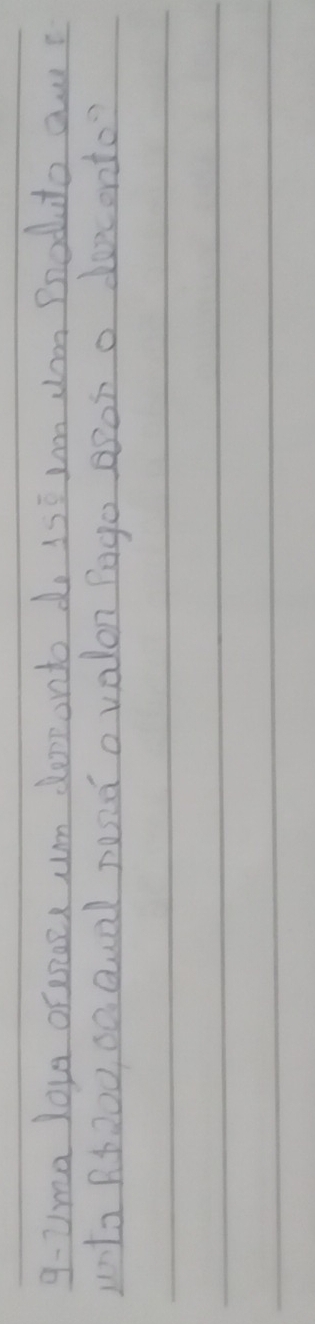 9-Uma loja oferece um desconto de 15% em um Produto que c
usta R$200,00 qual será o valor Pago após o desconto?